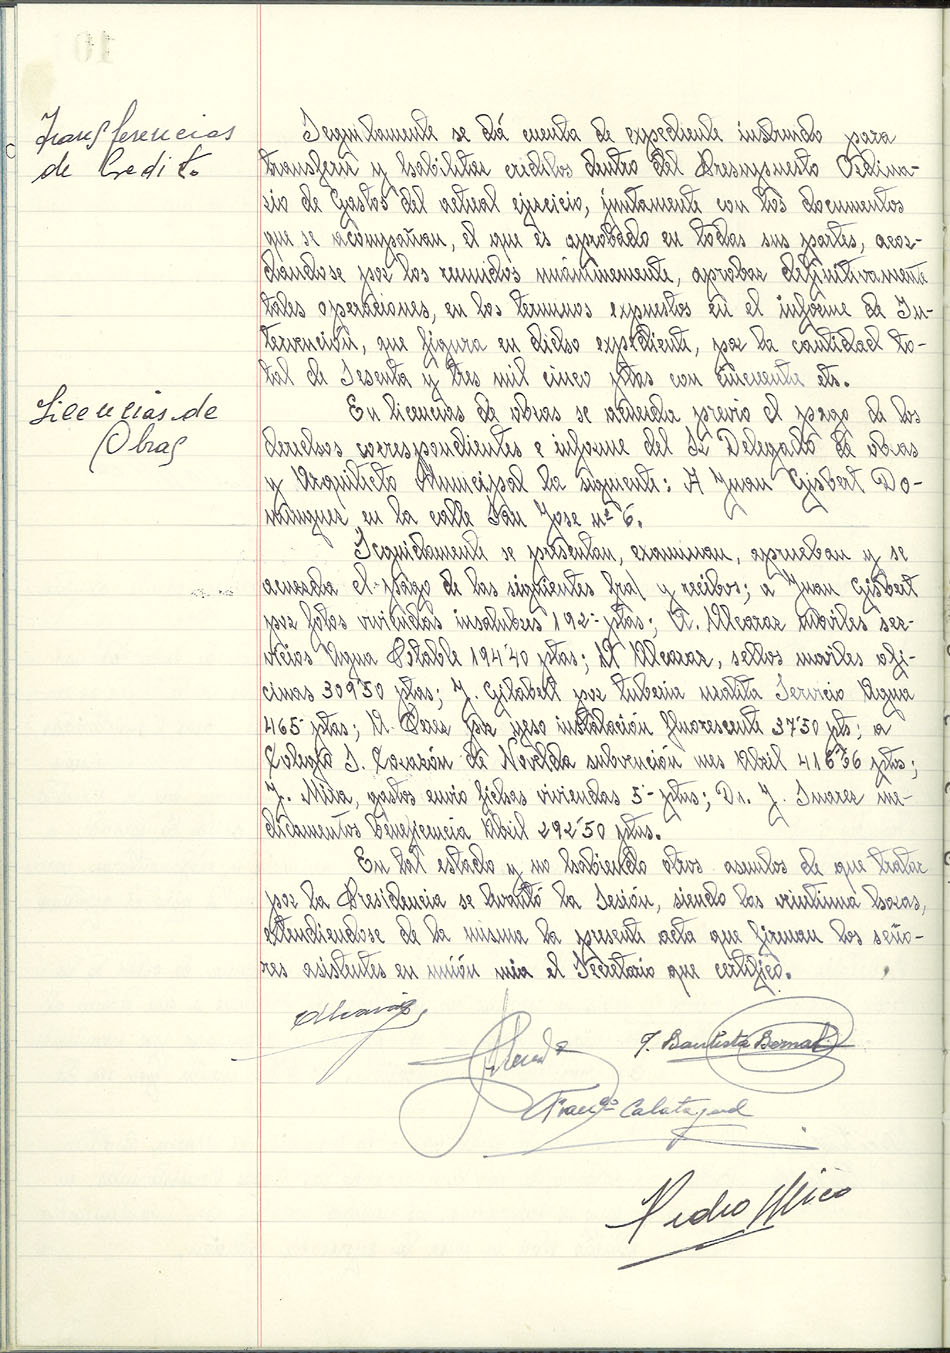 Transferencias
de Credito
Seguidamente se dá cuenta de expediente instruido para
transferir y habilitar créditos dentro del Presupuesto Ordina-
rio de Gastos del actual ejercicio, juntamente con los documentos
que se acompañan, el que es aprobado en todas sus partes, acor-
dándose por los reunidos unánimemente, aprobar definitivamente
tales operaciones, en los terminos expuestos en el informe de In-
tervención, que figura en dicho expediente, por la cantidad to-
tal de Sesenta y tres mil cinco ptas con cincuenta cts.
Licencias de
Obras
En licencias de obras se acuerda previo el pago de los
derechos correspondientes e informe del Sr Delegado de obras
y Arquitecto Municipal la siguiente: A Juan Gisbert Do-
minguez en la calle San Jose nº 6.
Seguidamente se presentan, examinan, aprueban y se
acuerda el pago de las siguientes fras y recibos; a Juan Gisbert
por fotos viviendas insalubres 192- ptas; A. Alcaraz móviles ser-
vicios Agua Potable 194'40 ptas; A Alcaraz, sellos moviles ofi-
cinas 309'50 ptas; J. Gisbert por tuberia Servicio Agua
465- ptas; por yeso instalación fluorescente 37'50 pts; a
J. de Novelda subvención mes Abril 416'36 ptas;
J. Mira, gastos envio fichas viviendas 5- ptas; Dn. J. me-
dicamentos beneficencia Abril 292'50 ptas.
En tal estado y no habiendo otros asuntos de que tratar
por la Presidencia se levantó la Sesión, siendo las veintiuna horas,
extendiendose de la misma la presente acta que firman los seño-
res asistentes en unión mia el Secretario que certifico.
J. Bautista Bernabe
Franco Calatayud
Pedro Mico